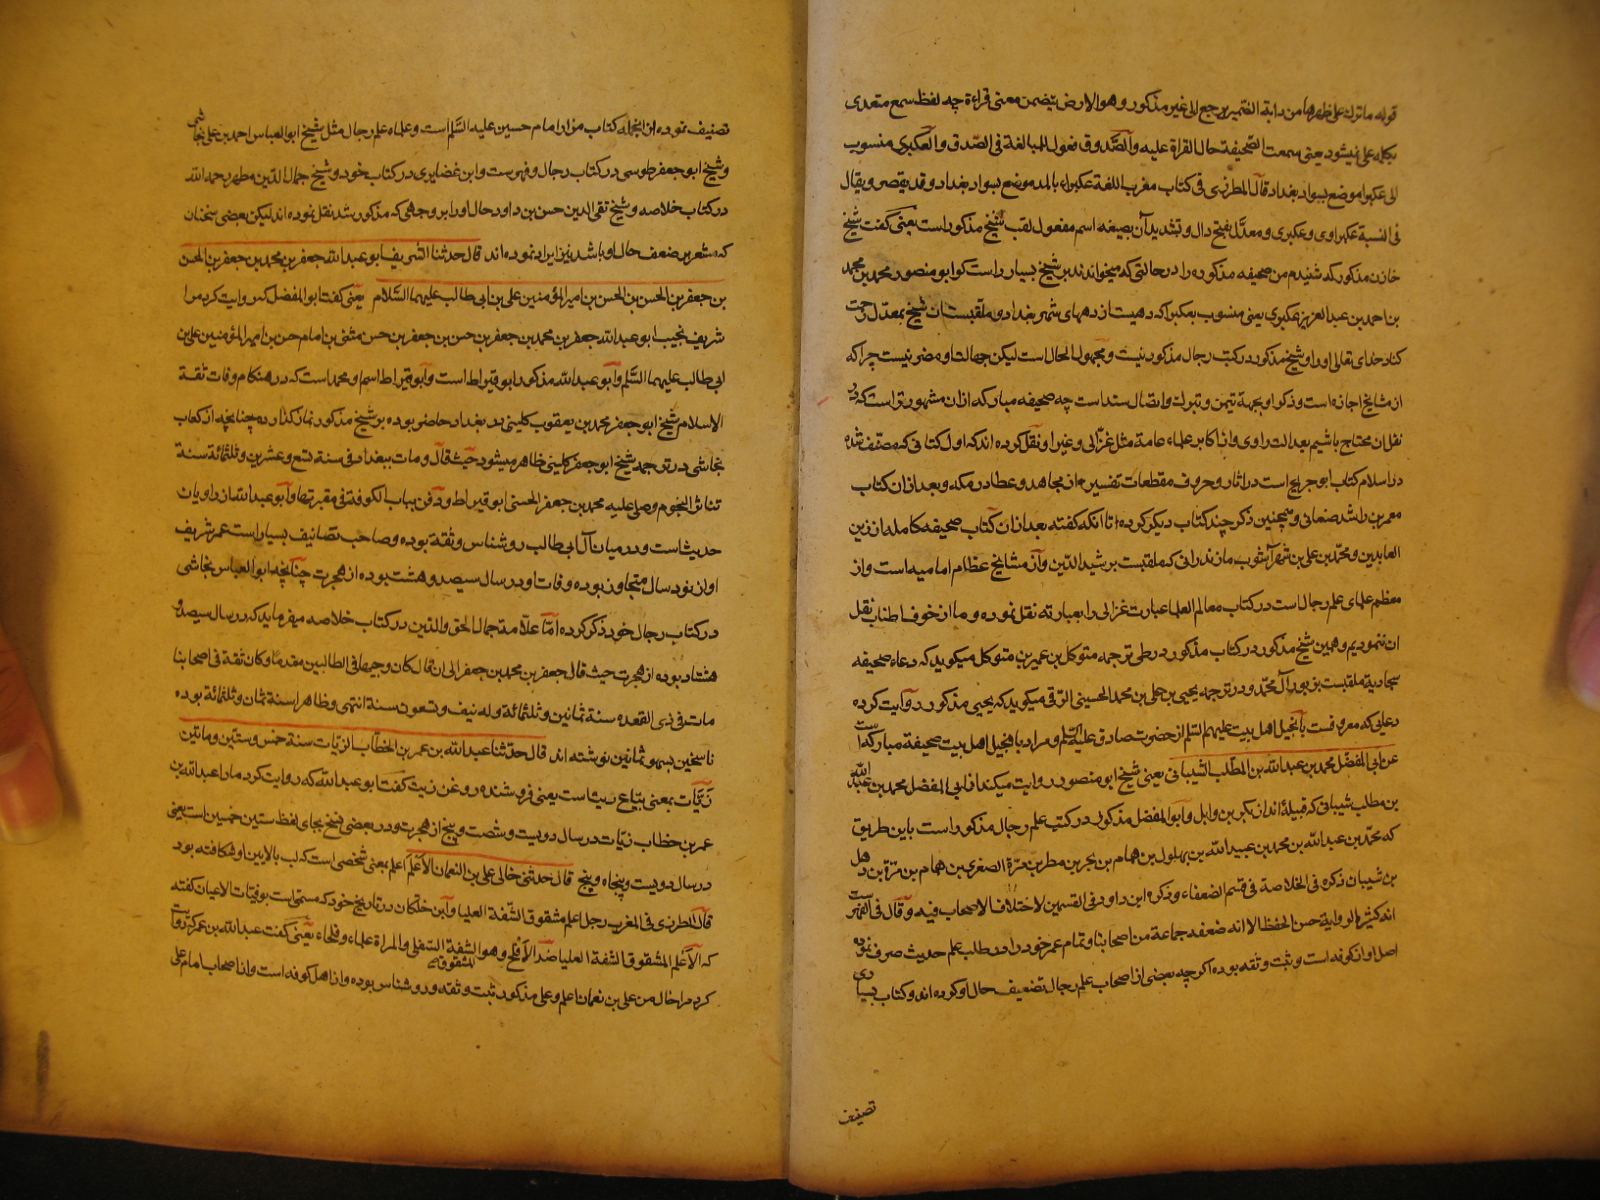 قوله ما ترك على ظهرها من دابة الضمير يرجع الى غير مذكور و هو الارض يتضمن معنى قراءة چه لفظ سمع متعدى
بكلمه على نميشود يعنى سمعت الصّحيفة حال القراة عليه و الصّدوق فعول للمبالغة فى الصّدق و العكبرى منسوب
الى عكبرا موضع بسواد بغداد قال المطرزى فى كتاب مغرب اللغة عكبراء بالمد موضع بسواد بغداد و قد يقصر و يقال
فى النسبة عكبراوى و عكبرى و معدّل بفتح دال و تشديد آن بصيغه اسم مفعول لقب شيخ مذكور است يعنى گفت شيخ
خازن مذكور كه شنيدم من صحيفه مذكوره را در حالتى كه ميخواندند بر شيخ بسيار راست كو ابو منصور محمد بن محمد
بن احمد بن عبد العزيز عكبرى يعنى منسوب بعكبرا كه دهيست از دههاى شهر بغداد و ملقبست ان شيخ بمعدّل رحمت
كناد خداى تعالى او را و شيخ مذكور در كتب رجال مذكور نيست و مجهول الحال است ليكن جهالت او مضر نيست چرا كه
از مشايخ اجازه است و ذكر او بجهة تيمن و تبرك و اتصال سند است چه صحيفه مباركه ازان مشهورتر است كه در
نقل ان محتاج باشيم بعدالت راوى و اكابر علماء عامة مثل غزّالى و غير او نقل كرده اند كه اول كتابى كه مصنف شده
در اسلام كتاب ابو جريح است در اثار و حروف مقطعات تفسيره از مجاهد و عطا در مكه و بعد ازان كتاب
معمر بن راشد صنعانى و همچنين ذكر چند كتاب ديكر كرده تا انكه كفته بعد ازان كتاب صحيفه كامله از زين
العابدين و محمّد بن على بن شهر آشوب مازندرانى كه ملقبست برشيد الدّين و از مشايخ عظام اماميه است و از
معظم علماى علم رجال است در كتاب معالم العلما عبارت غزالى را بعبارته نقل نموده و ما از خوف اطناب نقل
ان ننموديم و همين شيخ مذكور در كتاب مذكور در طى ترجمه متوكل بن عمير بن متوكل ميكويد كه دعاء صحيفه
سجاديه ملقبست بزبور آل محمّد و در ترجمه يحيى بن على بن محمد الحسينى الرّقى ميكويد كه يحيى مذكور روايت كرده
دعائى كه معروفست بانجيل اهل بيت عليهم السّلم از حضرت صادق عليه السّلم و مراد بانجيل اهل بيت صحيفة مباركه است
عن ابى المفضل محمد بن عبد الله بن المطّلب الشيبانى يعنى شيخ ابو منصور روايت ميكند از ابى المفضل محمد بن عبد الله
بن مطلب شيبانى كه قبيلهٔ اند از بكر بن وايل و ابو المفضل مذكور در كتب علم رجال مذكور است باين طريق
كه محمّد بن عبد الله بن محمد بن عبيد الله بن بهلول بن همام بن مطلب بن همام بن بحر بن مطر بن مرّة الصغرى بن همام بن مرّة بن ذهل
بن شيبان ذكره فى الخلاصة فى قسم الضعفاء و ذكره ابن داود فى القسمين لاختلاف الاصحاب فيه و قال فى الفهرست
انه كثير الرواية حسن الحفظ الا انه ضعفه جماعة من اصحابنا و تمام عمر خود را در طلب علم حديث صرف نموده
اصل او از كوفه است و ثبت و ثقه بوده اكر چه بعضى از اصحاب علم رجال تضعيف حال او كرده اند و كتاب بسيارى
تصنيف
تصنيف نموده از انجمله كتاب مزار امام حسين عليه السّلم است و علماء علم رجال مثل شيخ ابو العباس احمد بن على نجاشى
و شيخ ابو جعفر طوسى در كتاب رجال و فهرست و ابن غضايرى در كتاب خود و شيخ جمال الدّين مطهر رحمه الله
در كتاب خلاصه و شيخ تقى الدين حسن بن داود حال او را بر وجهى كه مذكور شد نقل نموده اند ليكن بعضى سخنان
كه مشعر بر ضعف حال او باشد نيز ايراد نموده اند قال حدثنا الشريف ابو عبد الله جعفر بن محمد بن جعفر بن الحسن
بن جعفر بن الحسن بن الحسن بن امير المؤمنين على بن ابى طالب عليهما السّلام يعنى گفت ابو المفضل كه روايت كرد مرا
شريف نجيب ابو عبد الله جعفر بن محمد بن جعفر بن حسن بن جعفر بن حسن مثنى بن امام حسن بن امير المؤمنين على بن
ابى طالب عليهما السّلم و ابو عبد الله مذكور ابو قيراط است و ابو قيراط اسم و محمد است كه در هنكام وفات ثقة
الاسلام شيخ ابو جعفر محمد بن يعقوب كلينى در بغداد حاضر بوده بر شيخ مذكور نماز كذارده چنانچه از كتاب
نجاشى در ترجمه شيخ ابو جعفر كلينى ظاهر ميشود حيث قال و مات ببغداد فى سنة تسع و عشرين و ثلثمائة سنة
تناثر النجوم و صلى عليه محمد بن جعفر الحسنى ابو قيراط و دفن بباب الكوفة فى مقبرتها و ابو عبد الله از راويان
حديث است و در ميان آل ابى طالب روشناس و ثقة بوده و صاحب تصانيف بسيار است عمر شريف
او از نود سال متجاوز بوده و فات او در سال سيصد و هشت بوده از هجرت چنانچه ابو العباس نجاشى
در كتاب رجال خود ذكر كرده امّا علّامه جمال الحق و الدين در كتاب خلاصه ميفرمايد كه در سال سيصد و
هشتاد بوده از هجرت حيث قال جعفر بن محمد بن جعفر الى ان قال كان وجيها فى الطالبين مقدما و كان ثقة فى اصحابنا
مات فى ذى القعده سنة ثمانين و ثلثمائة و له نيف و تسعون سنة انتهى و ظاهرا سنة ثمان و ثلثمائة بوده
ناسخين بسهو ثمانين نوشته اند قال حدّثنا عبد الله بن عمر بن الخطّاب الزيّات سنة خمس و ستّين و مائتين
زيّات بمعنى بيّاع زيت است يعنى فروشنده روغن زيت گفت ابو عبد الله كه روايت كرد ما را عبد الله بن
عمر بن خطاب زيّات در سال دويست و شصت و پنج از هجرت و در بعضى نسخ بجاى لفظ ستين خمسين است يعنى
در سال دويست و پنجاه و پنج قال حدثنى خالى على بن النعمان الاعلم اعلم بمعنى شخصى است كه لب بالايين او شكافته بود
قال المطرزى فى المغرب رجل اعلم مشقوق الشّفة العليا و ابن خلّكان در تاريخ خود كه مسمّى است بوفيات الاعيان كفته
كه الاعلم المشقوق الشفة العليا ضدّ الافلح و هو المشقوق الشفة السّفلى و المراة علماء و فلحاء يعنى گفت عبد الله بن عمر كه روايت
كرد مرا خال من على بن نعمان اعلم و على مذكور ثبت و ثقه و روشناس بوده و از اهل كوفه است و از اصحاب امام على